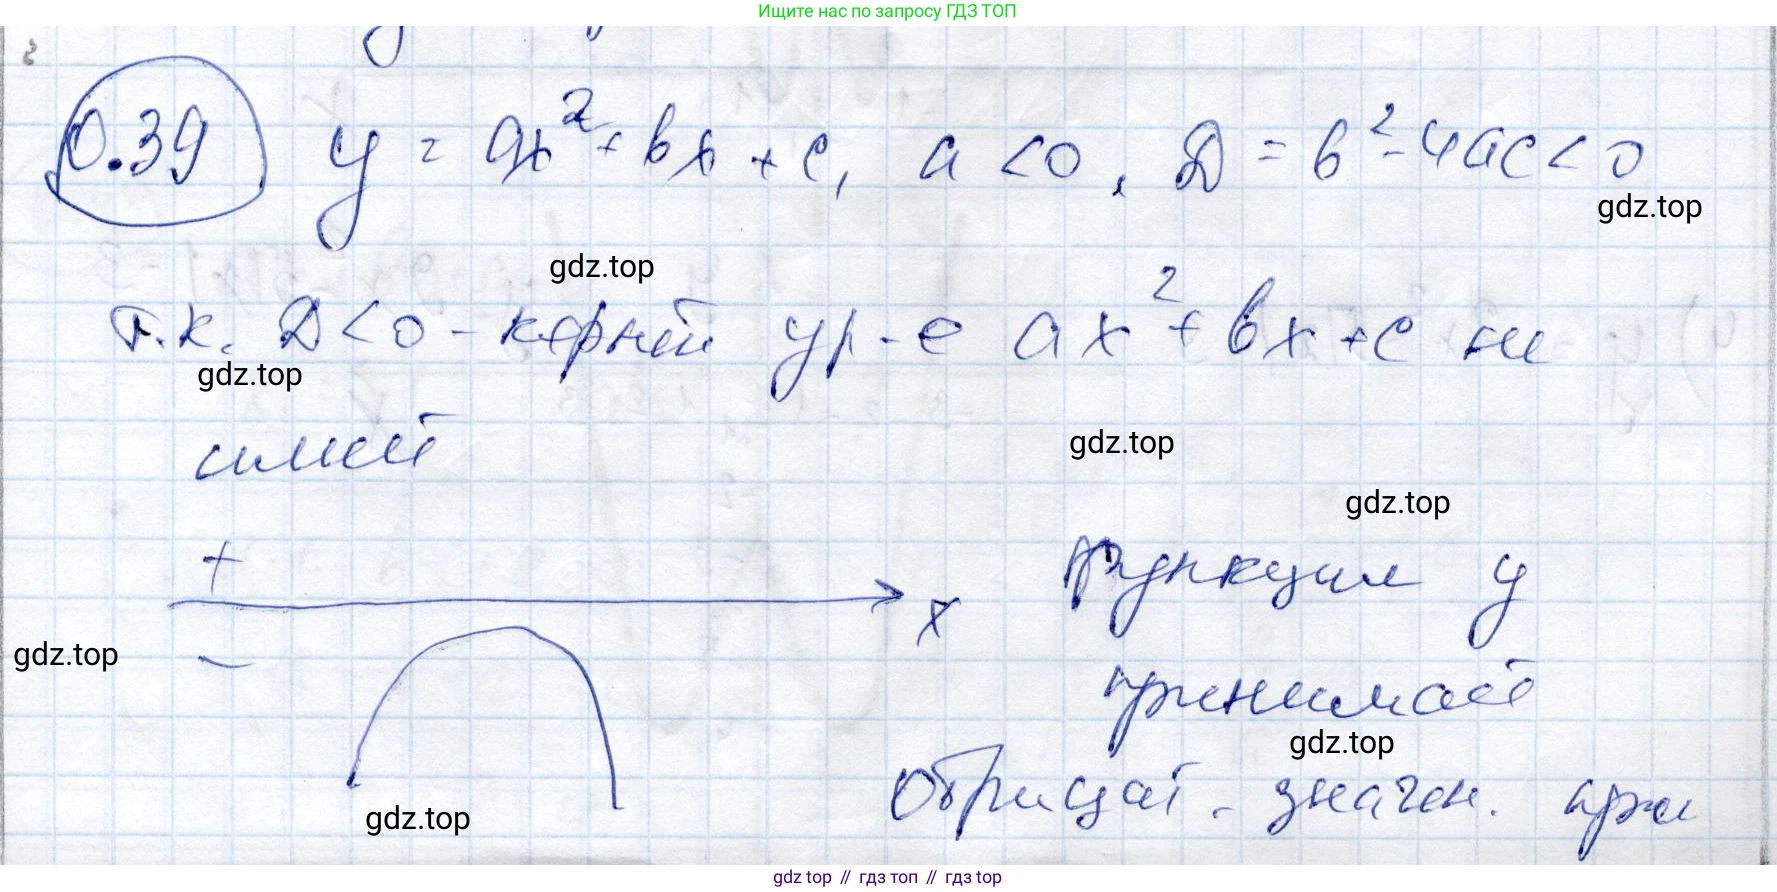 Ищите нас по запросу ГДЗ ТОП
0.39 y = ax² + bx + c, a < 0, D = b² - 4ac < 0
gdz.top
gdz.top
т.к. D < 0 - корней ур-е ax² + bx + c не
gdz.top
имеет
gdz.top
gdz.top
+
x
функция y
gdz.top
−
принимает
gdz.top
отрицат. значен. при
gdz.top
gdz.top // гдз топ // гдз top